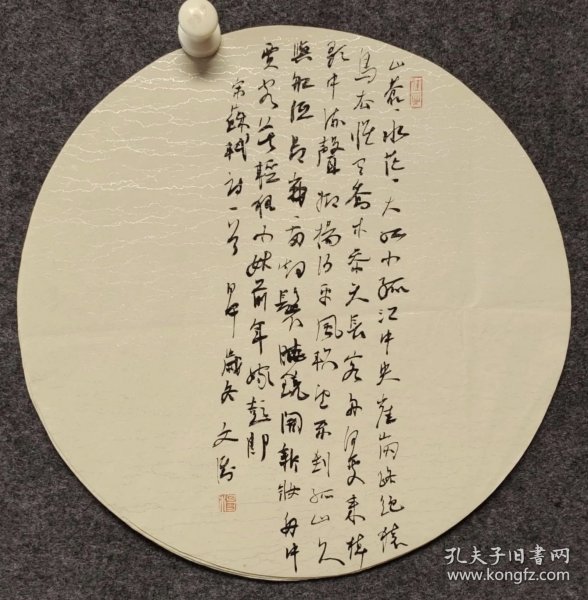 山蒼〻水茫〻大孤小孤江中央崖崩路絶猿
鳥去惟有喬木參天長客舟何處來棹
歌中流聲抑揚沙平風軟望不到孤山久
與船低昂峩〻兩烟鬟曉鏡開新妝舟中
賈客莫輕狂小姑前年嫁彭郎
宋蘇軾詩一首 甲申歲冬 文
孔夫子旧书网
www.kongfz.com